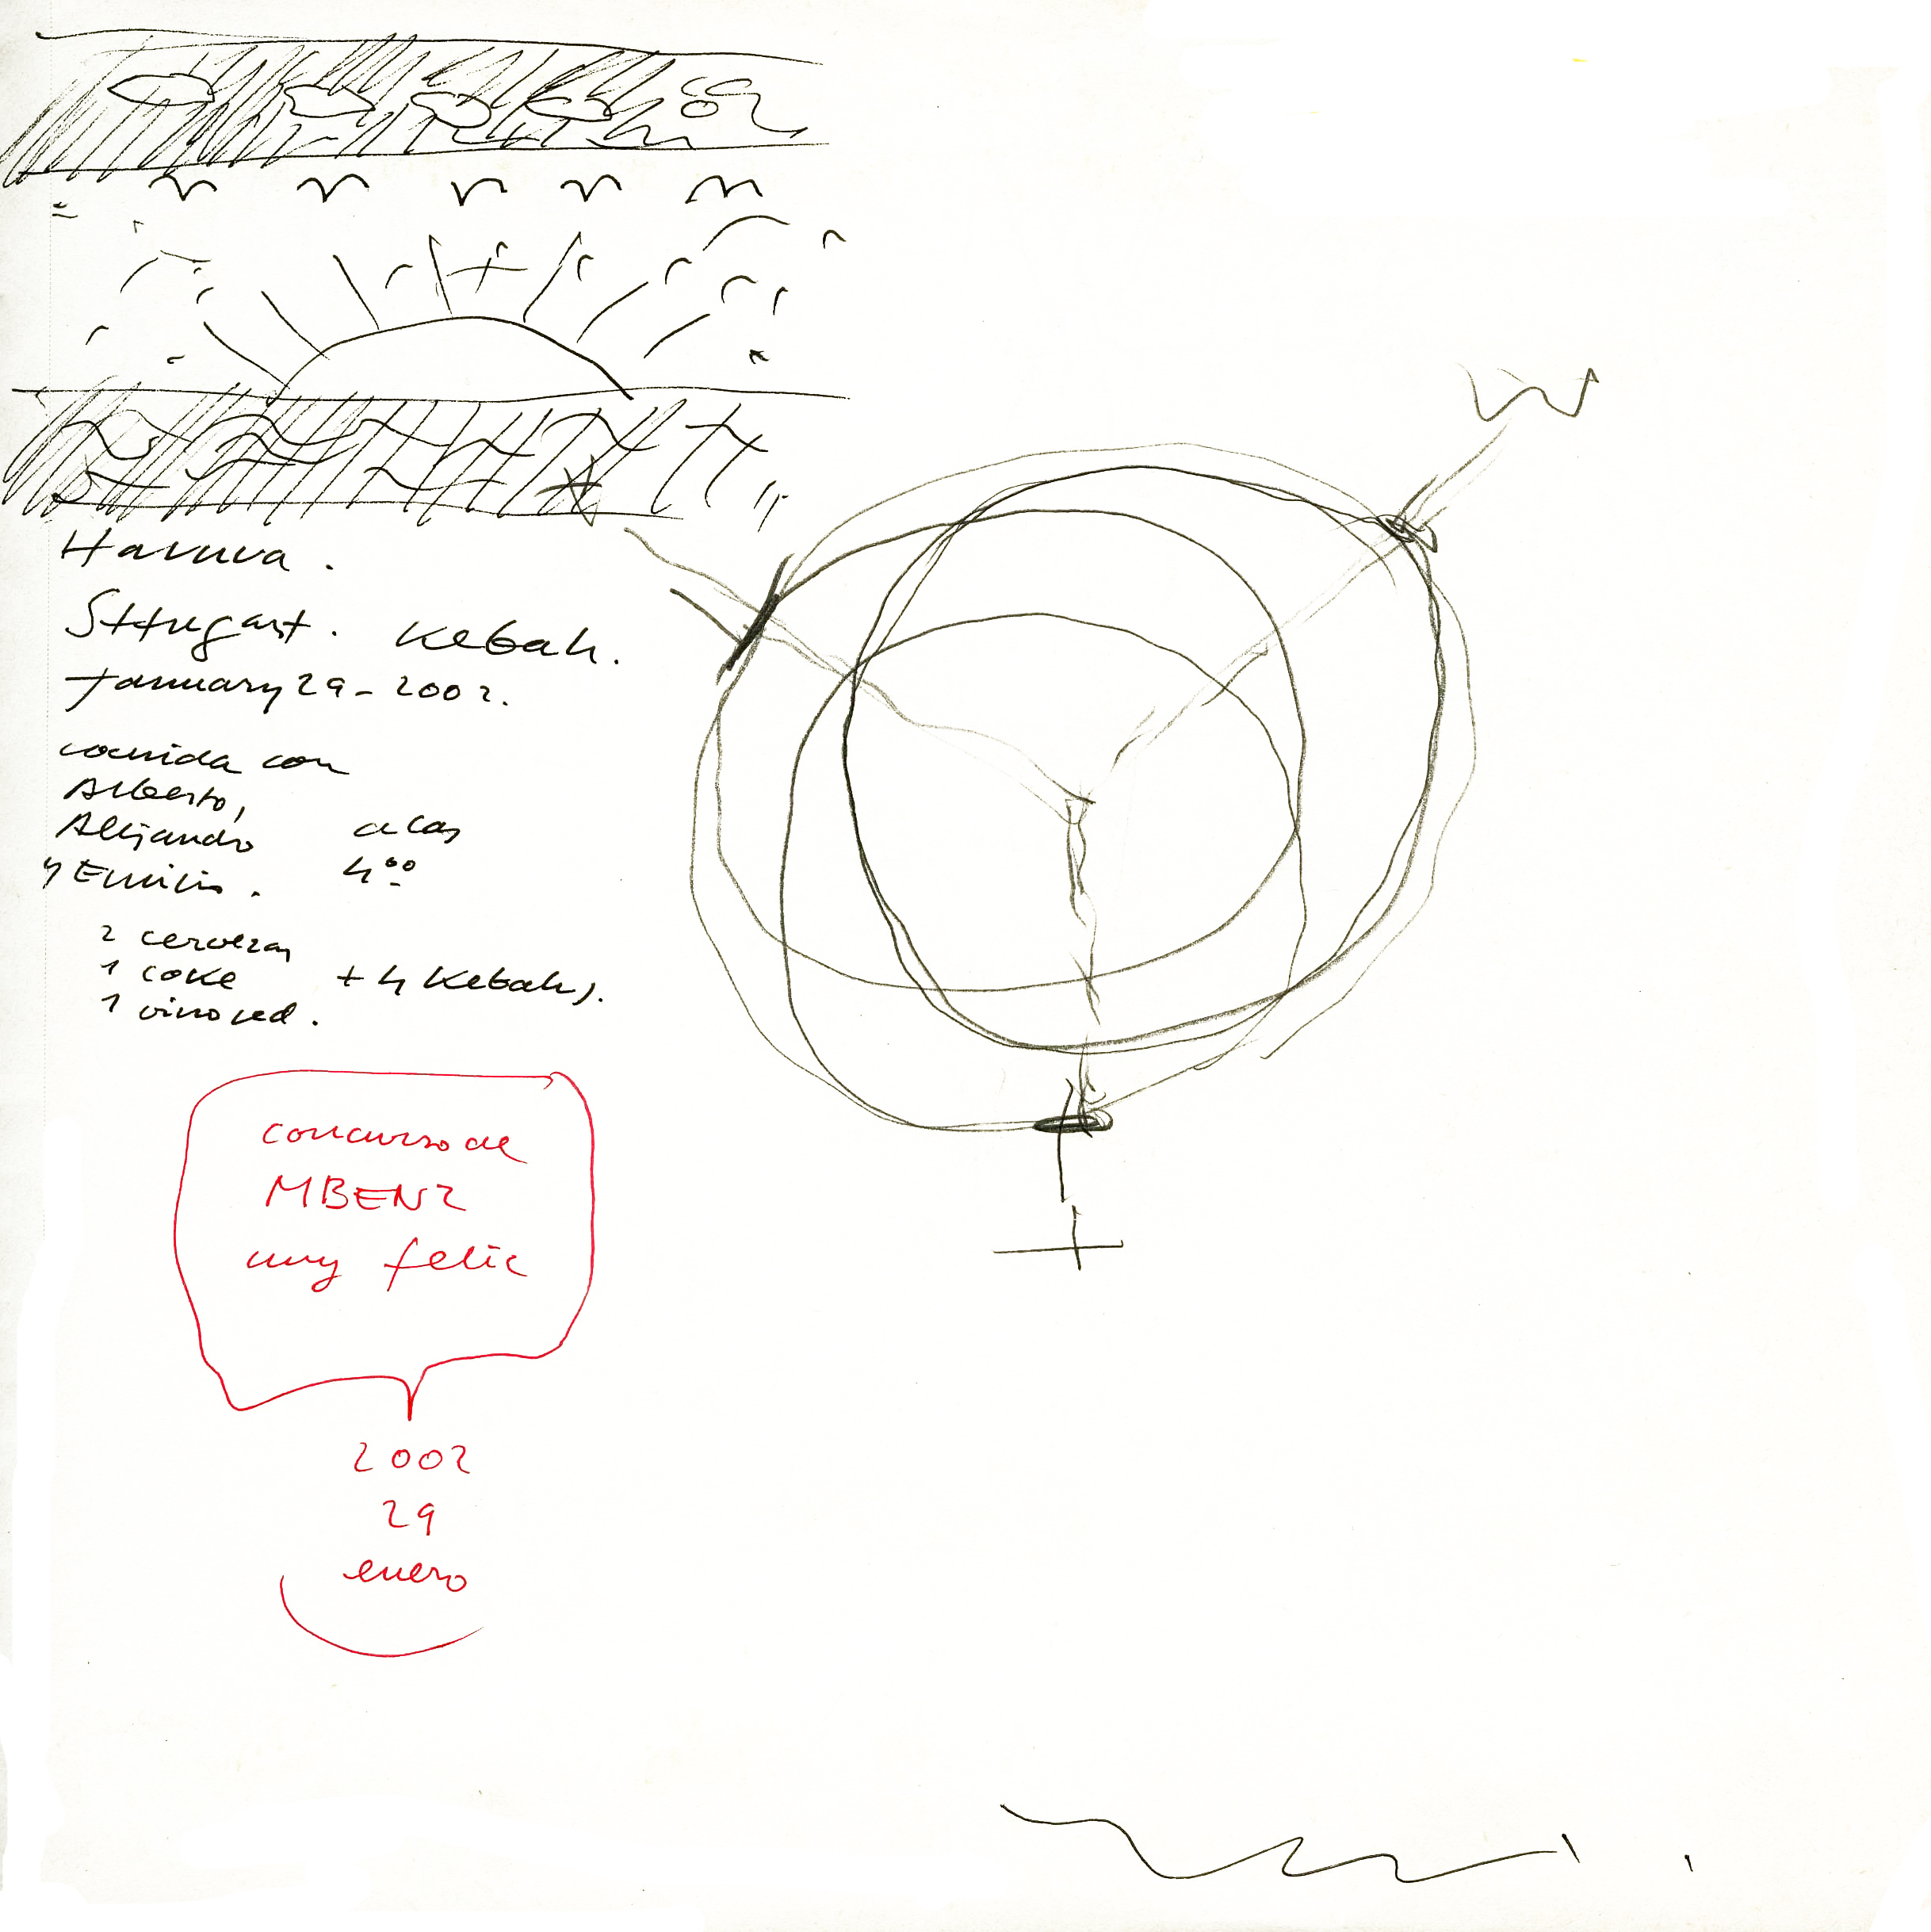 Havuva.
Sttugart. Kebah.
January 29 - 2002.
comida con
Alberto,
Alejandro a las
y Emilio. 4⁰⁰
2 cervezas
1 coke + 4 Kebahs.
1 vino red.
concurso de
MBENZ
muy feliz
2002
29
enero
W